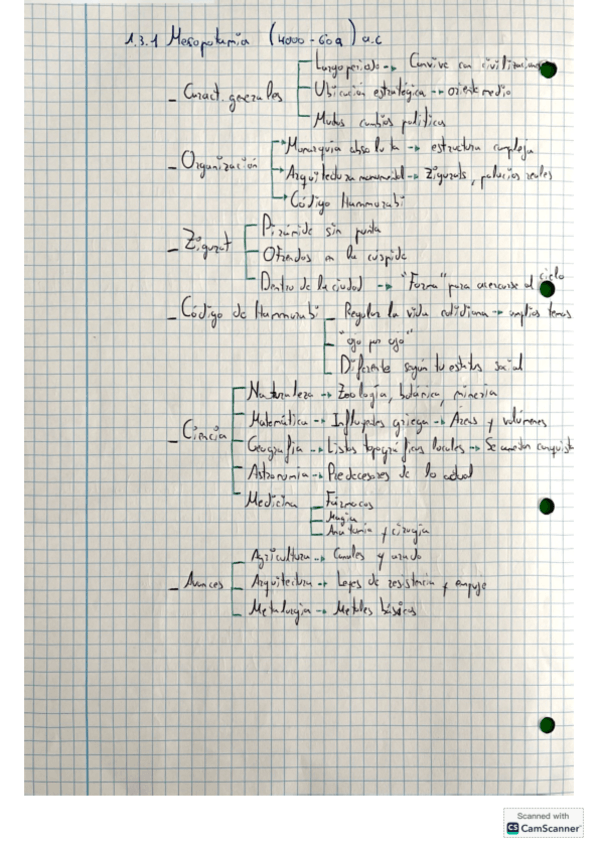 1.3.1 Mesopotamia (4000-609) a.c
- Caract. generales
Largo periodo → Convive con civilizaciones
Ubicación estratégica → oriente medio
Muchos cambios políticos
- Organización
Monarquía absoluta → estructura compleja
Arquitectura monumental → Zigurats, palacios reales
Código Hammurabi
- Zigurat
Pirámide sin punta
Ofrendas en la cúspide
Dentro de la ciudad → "Forma" para acercarse al cielo
- Código de Hammurabi
Regular la vida cotidiana → amplios temas
"ojo por ojo"
Diferente según tu estatus social
- Ciencia
Naturaleza → Zoología, botánica, minería
Matemática → Influyentes griega → Areas y volúmenes
Geografía → Listas topográficas locales → Se anotan conquist
Astronomía → Predecesores de la actual
Medicina
Fármacos
Magia
Anatomía y cirugía
- Avances
Agricultura → Canales y arado
Arquitectura → Leyes de resistencia y empuje
Metalurgia → Metales básicos
Scanned with
CS CamScanner